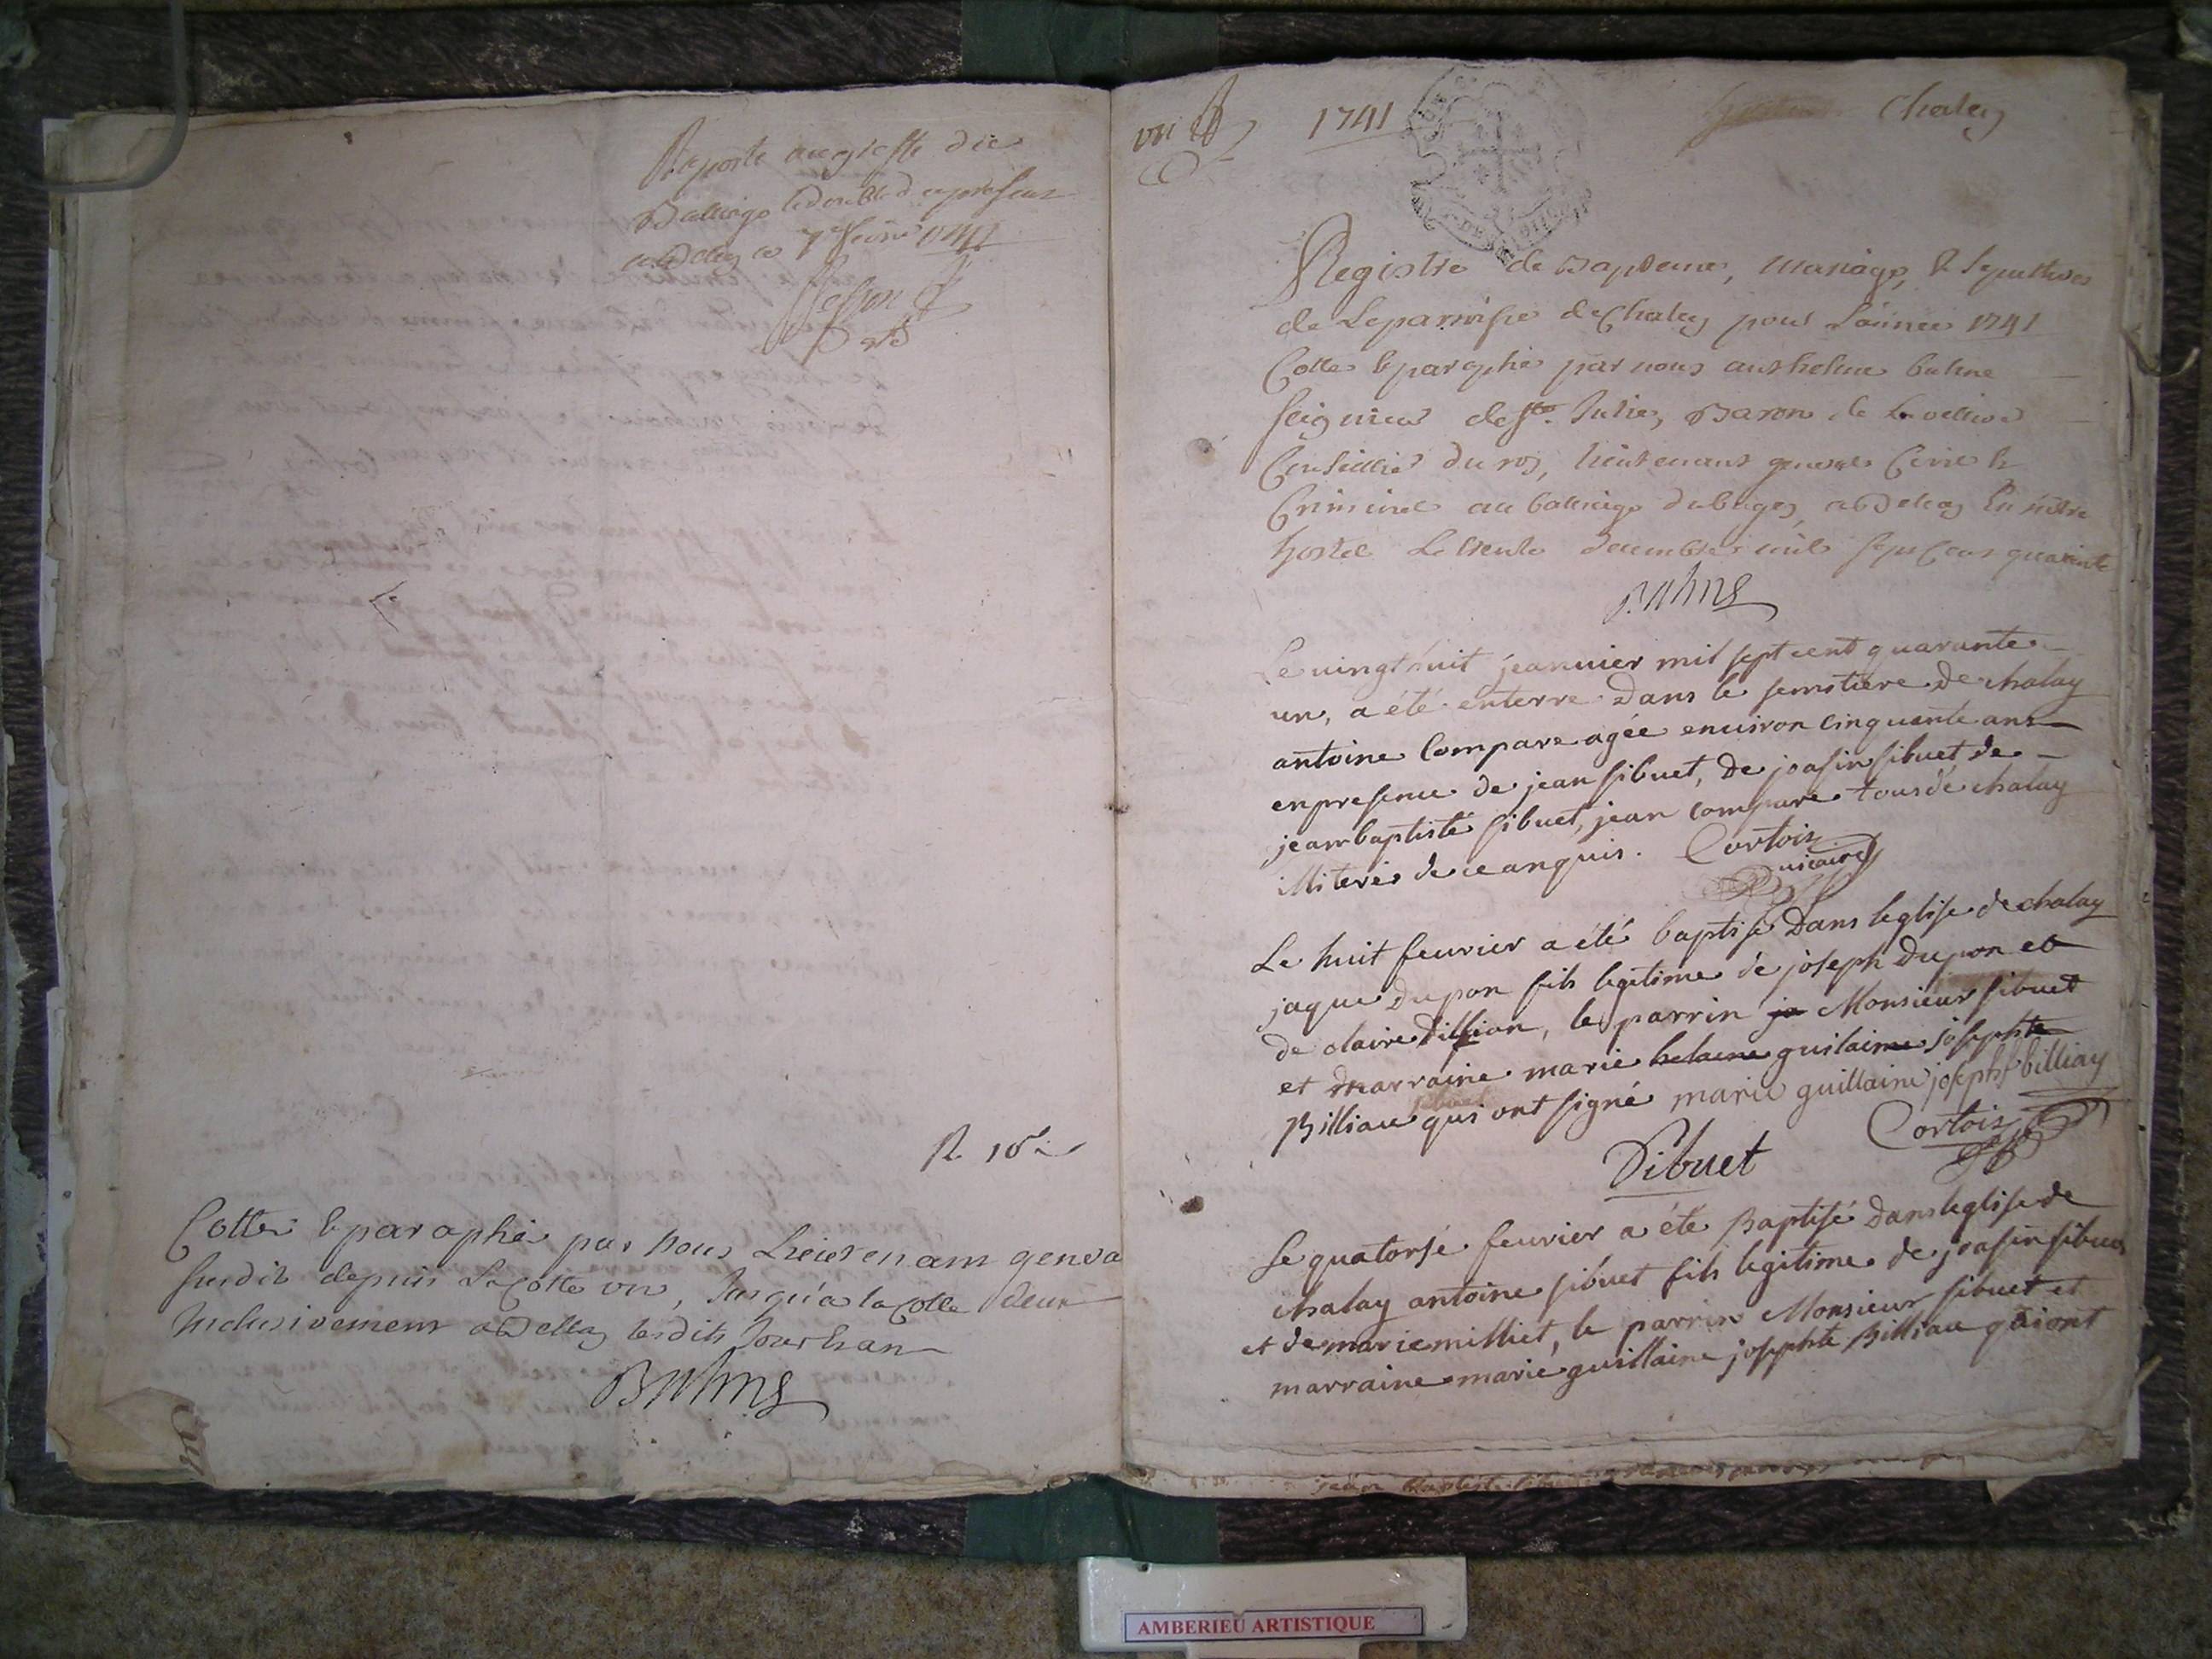 Raporté au greffe du
Balliage le double du present
a Belley ce 7e
R. 10s
Cotté & paraphé par Nous Lieutenant general
susdit depuis La Cotte un, Jusqu'a la Cotte deux
Inclusivement a Belley lesdits Jour & an
Balme
un
1741
Chaley
Registre de Baptemes, mariages, & Sepultures
de La parroisse de Chaley pour L'année 1741
Cotté & paraphé par nous anthelme balme
seigneur de Ste. Julie, Baron de
Conseiller du roy, lieutenant general Civil &
Criminel au balliage du bugey, a Belley En nôtre
hostel Le trente decembre mil sept Cens quarante
Balme
Le vingt huit jeanvier mil sept cent quarante
un, a été enterre Dans le semitiere De chalay
antoine Compare agée environ cinquante ans
en presence de jean sibuet, de joasin sibuet de
jean baptiste sibuet, jean compare tous de chalay
illiterés de ce anquis. Cortois
vicaire
Le huit feuvrier a été baptisé Dans leglise de chalay
jaque Dupon fils legitime de joseph Dupon et
de claire, le parrin ja Monsieur sibuet
et marraine marie helaene guilaine josephte
Billiau qui ont signé marie guillaine joseph billiay
Sibuet
Cortois
Le quatorse feuvrier a été Baptisé Dans leglise de
chalay antoine sibuet fils legitime de joasin sibuet
et de marie milliet, le parrin Monsieur sibuet et
marraine marie guillaine josephte Billiau qui ont
jean Baptiste
AMBERIEU ARTISTIQUE